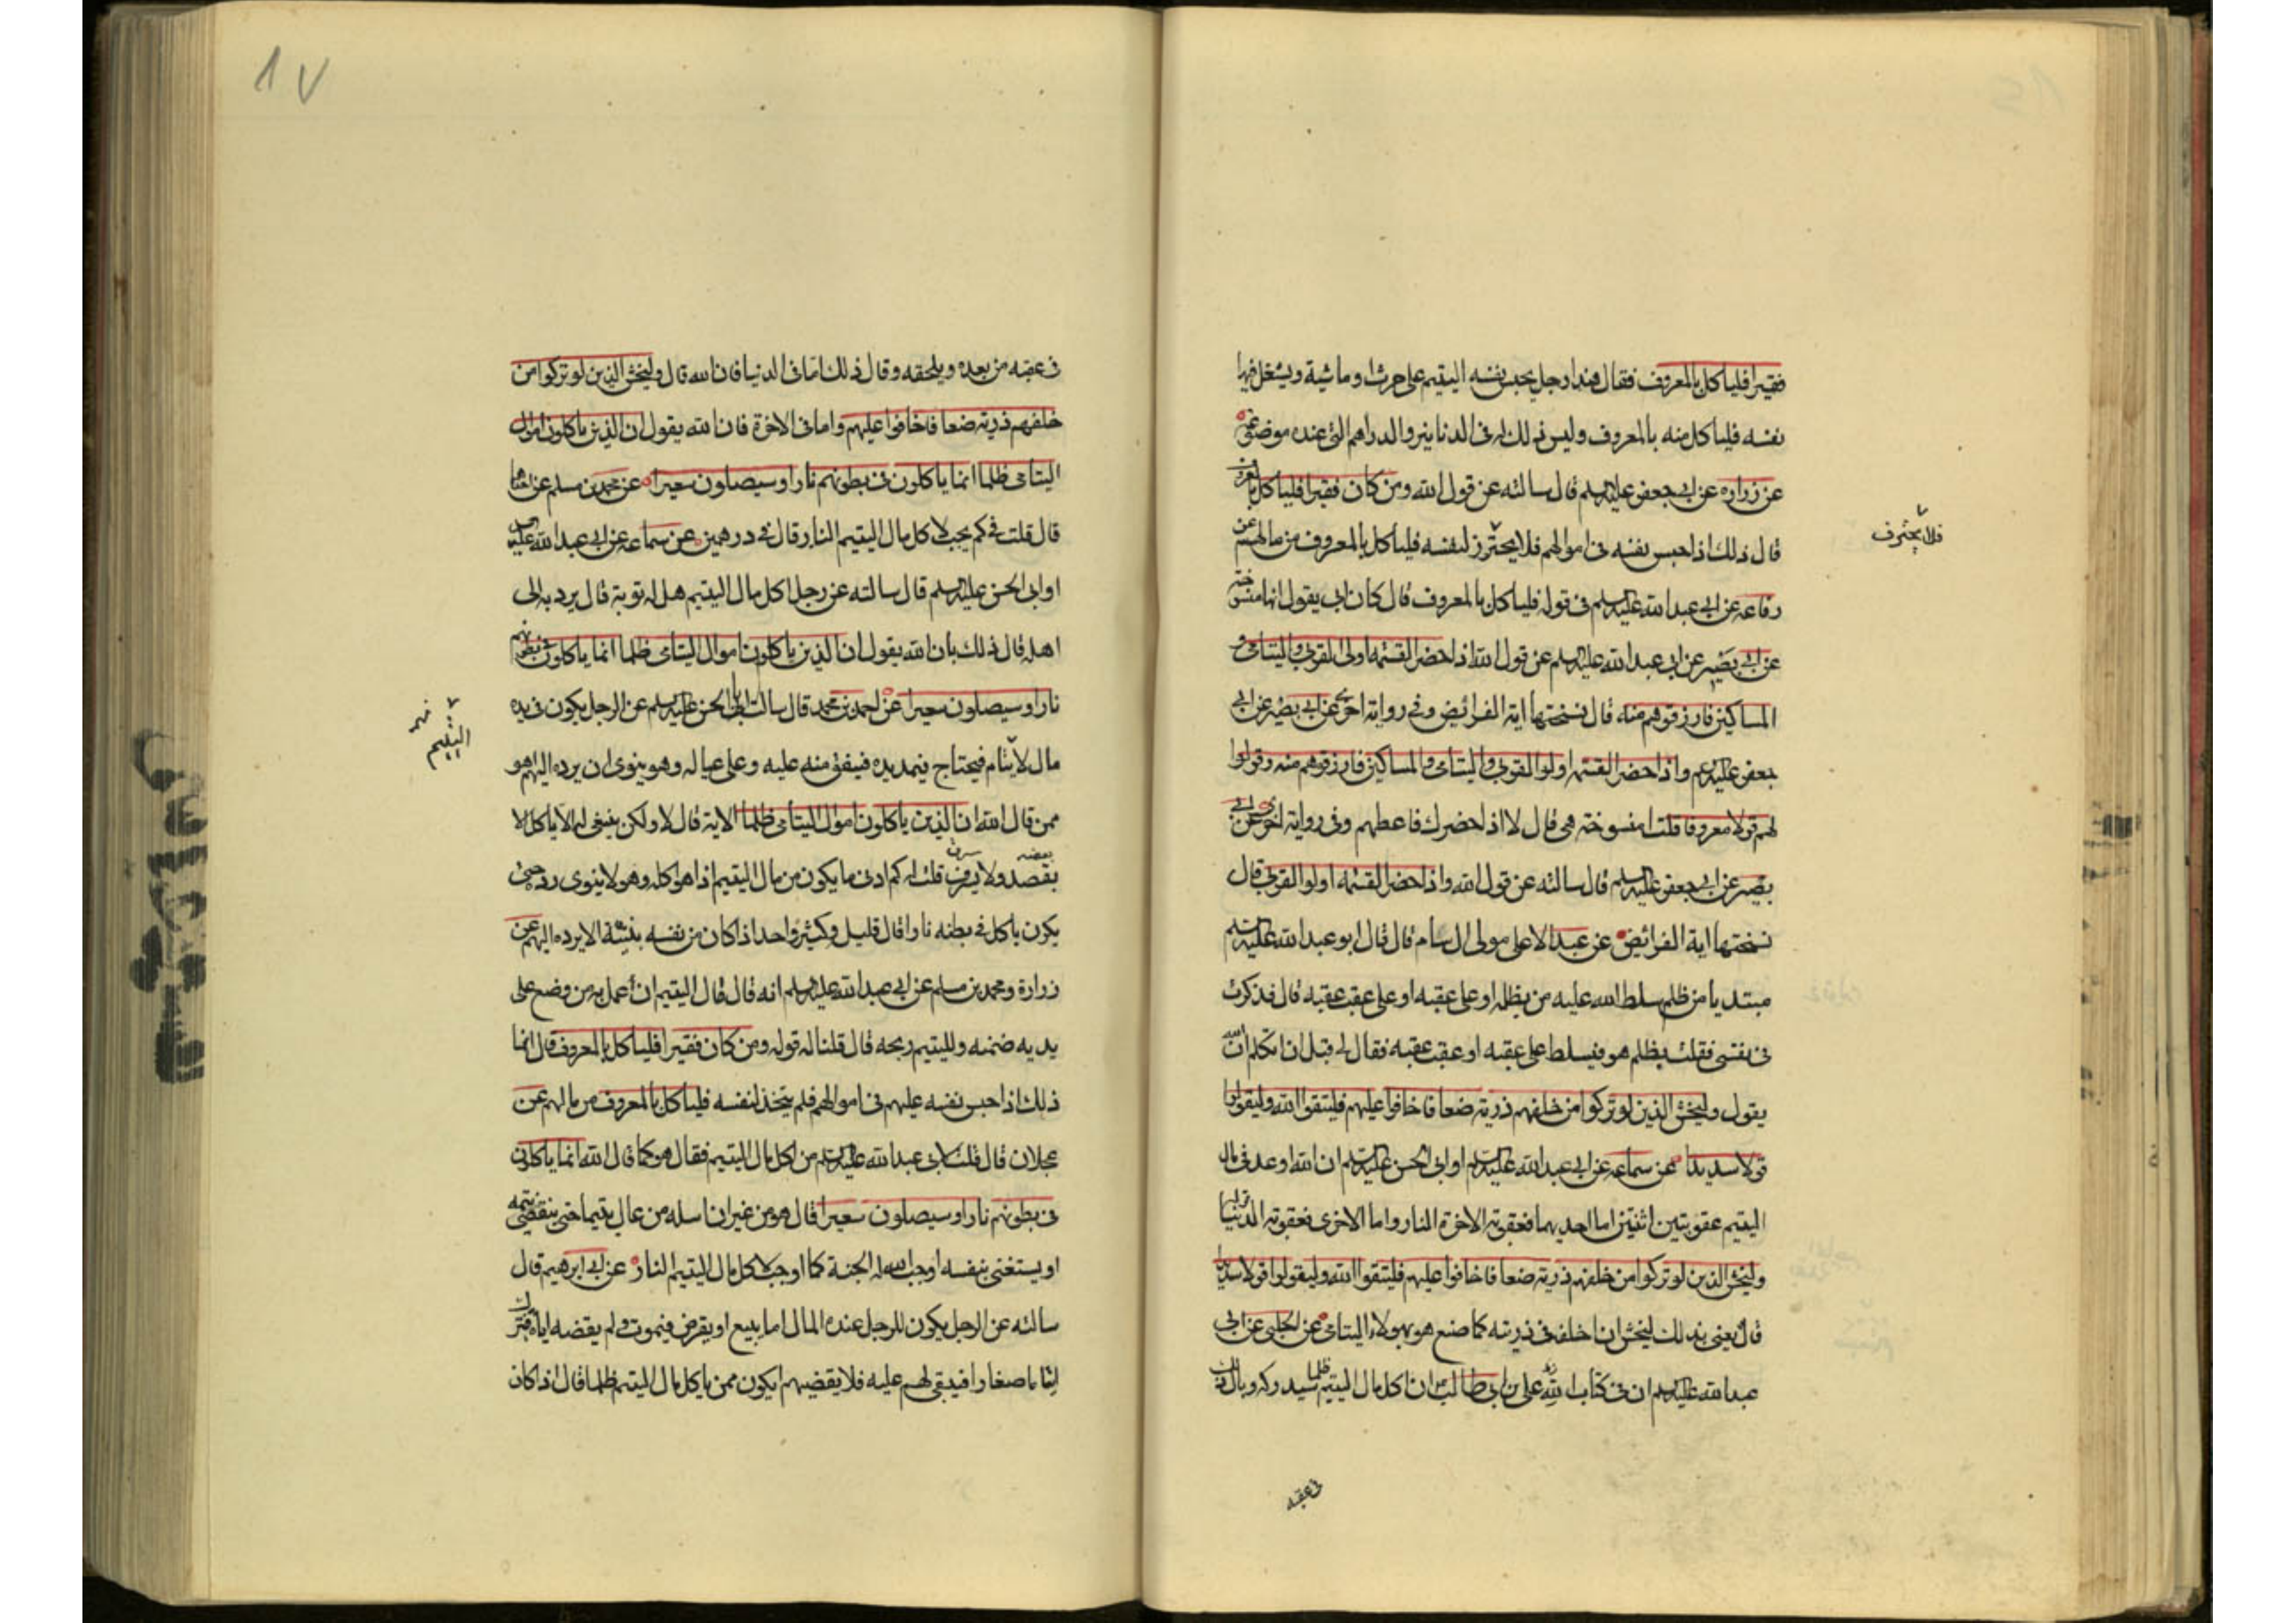 فقيرا فلياكل بالمعروف فقال هذا رجل يحبس نفسه لليتيم على حرث او ماشية ويشغل فيها
نفسه فلياكل منه بالمعروف وليس ذلك له فى الدنانير والدراهم التى عنده موضوعة
عن زرارة عن ابى جعفر عليه السلم قال سالته عن قول الله ومن كان فقيرا فلياكل بالمعروف
قال ذلك اذا حبس نفسه فى اموالهم فلا يحترز لنفسه فلياكل بالمعروف من مالهم عن
فلا يحترف
رفاعه عن ابى عبدالله عليه السلم فى قوله فلياكل بالمعروف قال كان ابى يقول انها منسوخة
عن ابى بصير عن ابى عبدالله عليه السلم عن قول الله اذا حضر القسمه اولى القربى واليتامى و
المساكين فارزقوهم منه قال نسختها اية الفرائض وفى رواية اخرى عن ابى بصير عن ابى
جعفر عليه السلم واذا حضر القسمه اولوا القربى واليتامى والمساكين فارزقوهم منه وقولوا
لهم قولا معروفا قلت امنسوخة هى قال لا اذا حضرك فاعطهم وفى رواية اخرى عن ابى
بصير عن ابى جعفر عليه السلم قال سالته عن قول الله واذا حضر القسمه اولوا القربى قال
نسختها اية الفرائض عن عبدالاعلى مولى ال سام قال قال ابو عبدالله عليه السلم
مبتديا من ظلم سلط الله عليه من يظلمه او على عقبه او على عقب عقبه قال فذكرت
فى نفسى فقلت يظلم هو فيسلط على عقبه او عقب عقبه فقال لى قبل ان اتكلم ان الله
يقول وليخش الذين لو تركوا من خلفهم ذرية ضعافا خافوا عليهم فليتقوا الله وليقولوا
قولا سديدا عن سماعه عن ابى عبدالله عليه السلم او ابى الحسن عليه السلم ان الله اوعد فى مال
اليتيم عقوبتين اثنتين اما احديهما فعقوبة الاخرة النار واما الاخرى فعقوبة الدنيا قوله
وليخش الذين لو تركوا من خلفهم ذرية ضعافا خافوا عليهم فليتقوا الله وليقولوا قولا سديدا
قال يعنى بذلك ليخش ان اخلفه فى ذريته كما صنع هو بهولاء اليتامى عن الحلبى عن ابى
عبدالله عليه السلم ان فى كتاب الله على بن ابى طالب ان اكل مال اليتيم ظلما سيدركه وبال ذلك
فى عقبه
١٧
فى عقبه من بعده ويلحقه وقال ذلك اما فى الدنيا فان الله قال وليخش الذين لو تركوا من
خلفهم ذرية ضعافا خافوا عليهم واما فى الاخرة فان الله يقول ان الذين ياكلون اموال
اليتامى ظلما انما ياكلون فى بطونهم نارا وسيصلون سعيرا عن محمد بن مسلم عن احدهما
قال قلت فى كم يجب لاكل مال اليتيم النار قال فى درهمين عن سماعه عن ابى عبدالله عليه السلم
او ابى الحسن عليه السلم قال سالته عن رجل اكل مال اليتيم هل له توبة قال يرد به الى
اهله قال ذلك بان الله يقول ان الذين ياكلون اموال اليتامى ظلما انما ياكلون فى بطونهم
نارا وسيصلون سعيرا عن احمد بن محمد قال سالت ابا الحسن عليه السلم عن الرجل يكون فى يده
مال لايتام فيحتاج فيمد يده فينفق منه عليه وعلى عياله وهو ينوى ان يرده اليهم اهو
اليتيم
ممن قال الله ان الذين ياكلون اموال اليتامى ظلما الاية قال لا ولكن ينبغى له الا ياكل الا
بقصد ولا يسرف قلت له كم ادنى ما يكون من مال اليتيم اذا هو اكله وهو لا ينوى رده حتى
يكون ياكل فى بطنه نارا قال قليله وكثيره واحد اذا كان من نفسه بنيته الا يرده اليهم عن
زرارة ومحمد بن مسلم عن ابى عبدالله عليه السلم انه قال قال اليتيم ان عمل به من وضع على
يديه ضمنه ولليتيم ربحه قال قلنا له قوله ومن كان فقيرا فلياكل بالمعروف قال انما
ذلك اذا حبس نفسه عليهم فى اموالهم فلم يتخذ لنفسه فلياكل بالمعروف من مالهم عن
عجلان قال قلت لابى عبدالله عليه السلم من اكل مال اليتيم فقال هو كما قال الله انما ياكلون
فى بطونهم نارا وسيصلون سعيرا قال هو من غير ان اساله من عال يتيما حتى ينقضى يتمه
او يستغنى بنفسه اوجب الله له الجنة كما اوجب لاكل مال اليتيم النار عن ابى ابرهيم قال
سالته عن الرجل يكون للرجل عنده المال اما ببيع او بقرض فيموت ولم يقضه اياه فيترك
ايتاما صغارا فيبقى لهم عليه فلا يقضيهم ايكون ممن ياكل مال اليتيم ظلما قال اذا كان